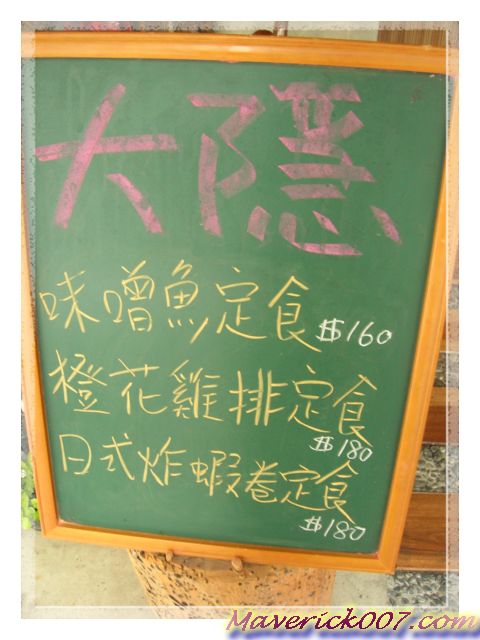 大隱
味噌魚定食 $160
橙花雞排定食 $180
日式炸蝦卷定食 $180
Maverick007.com